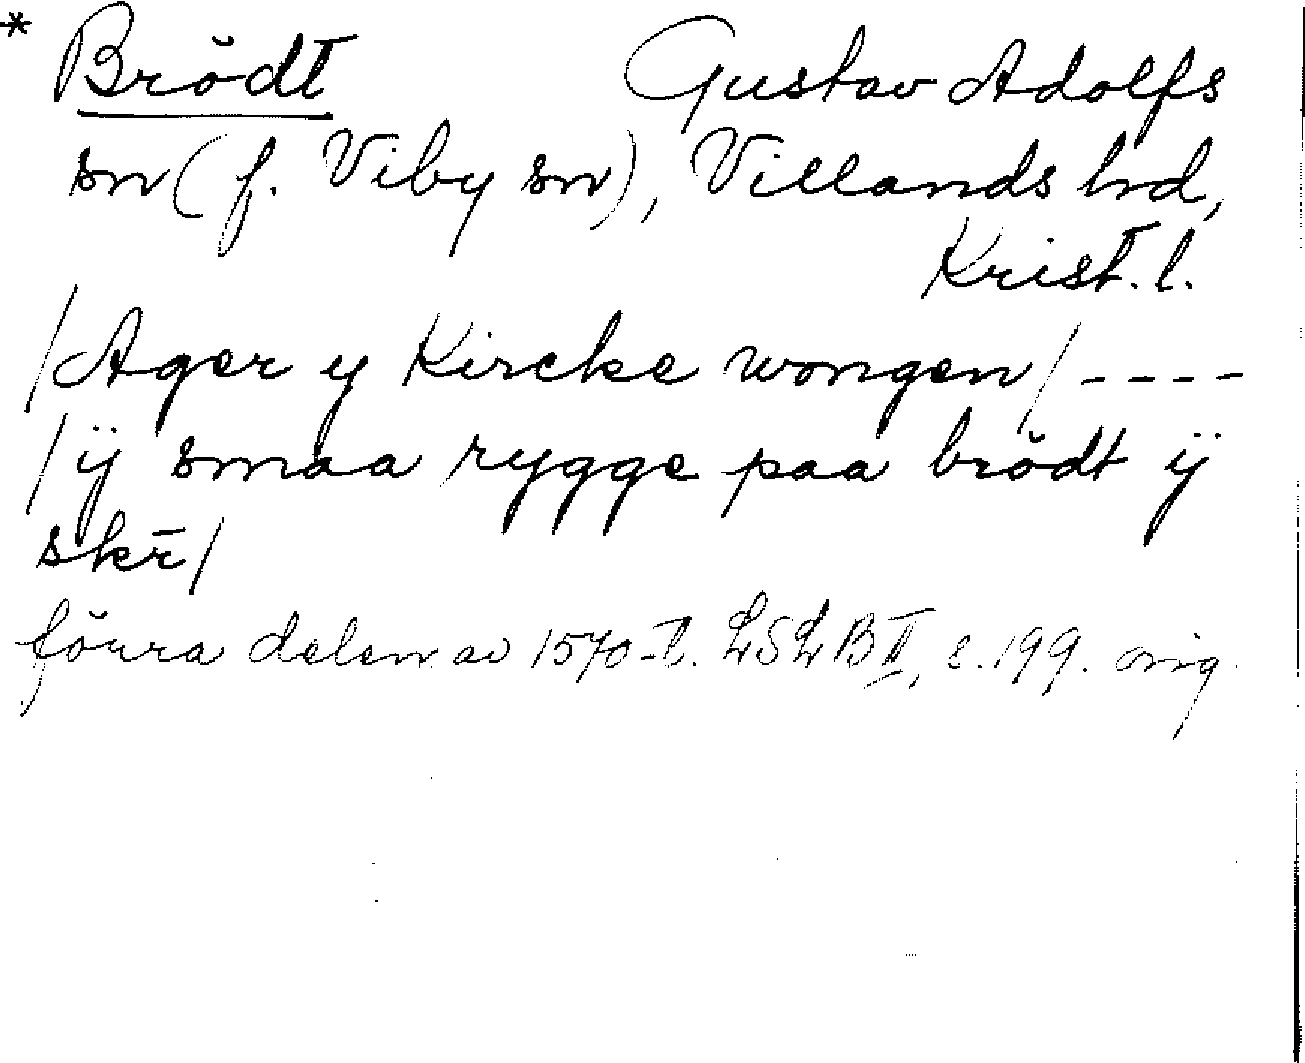 * Brŏdt Gustav Adolfs
sn (f. Viby sn), Villands hd,
Krist. l.
/Ager y Kircke wongen/ ----
/ÿ smaa rygge paa brŏdt ÿ
skr̄/
förra delen av 1570-t. LSLB II, s. 199. orig.